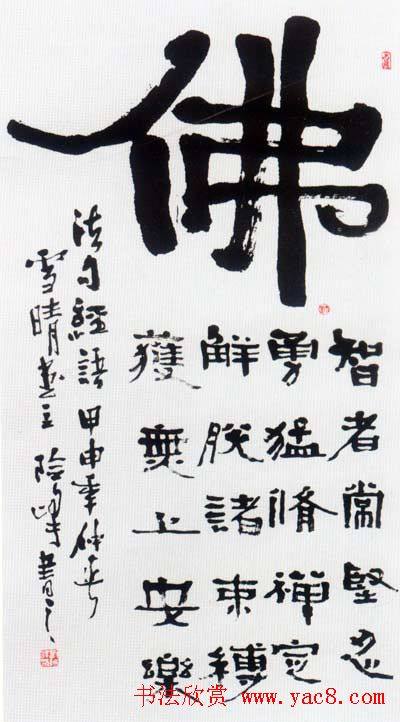 佛
智者常堅忍
勇猛脩禪定
解脫諸束縛
獲無上安樂
法句經語 甲申年仲
雪晴主 險峰書
书法欣赏 www.yac8.com